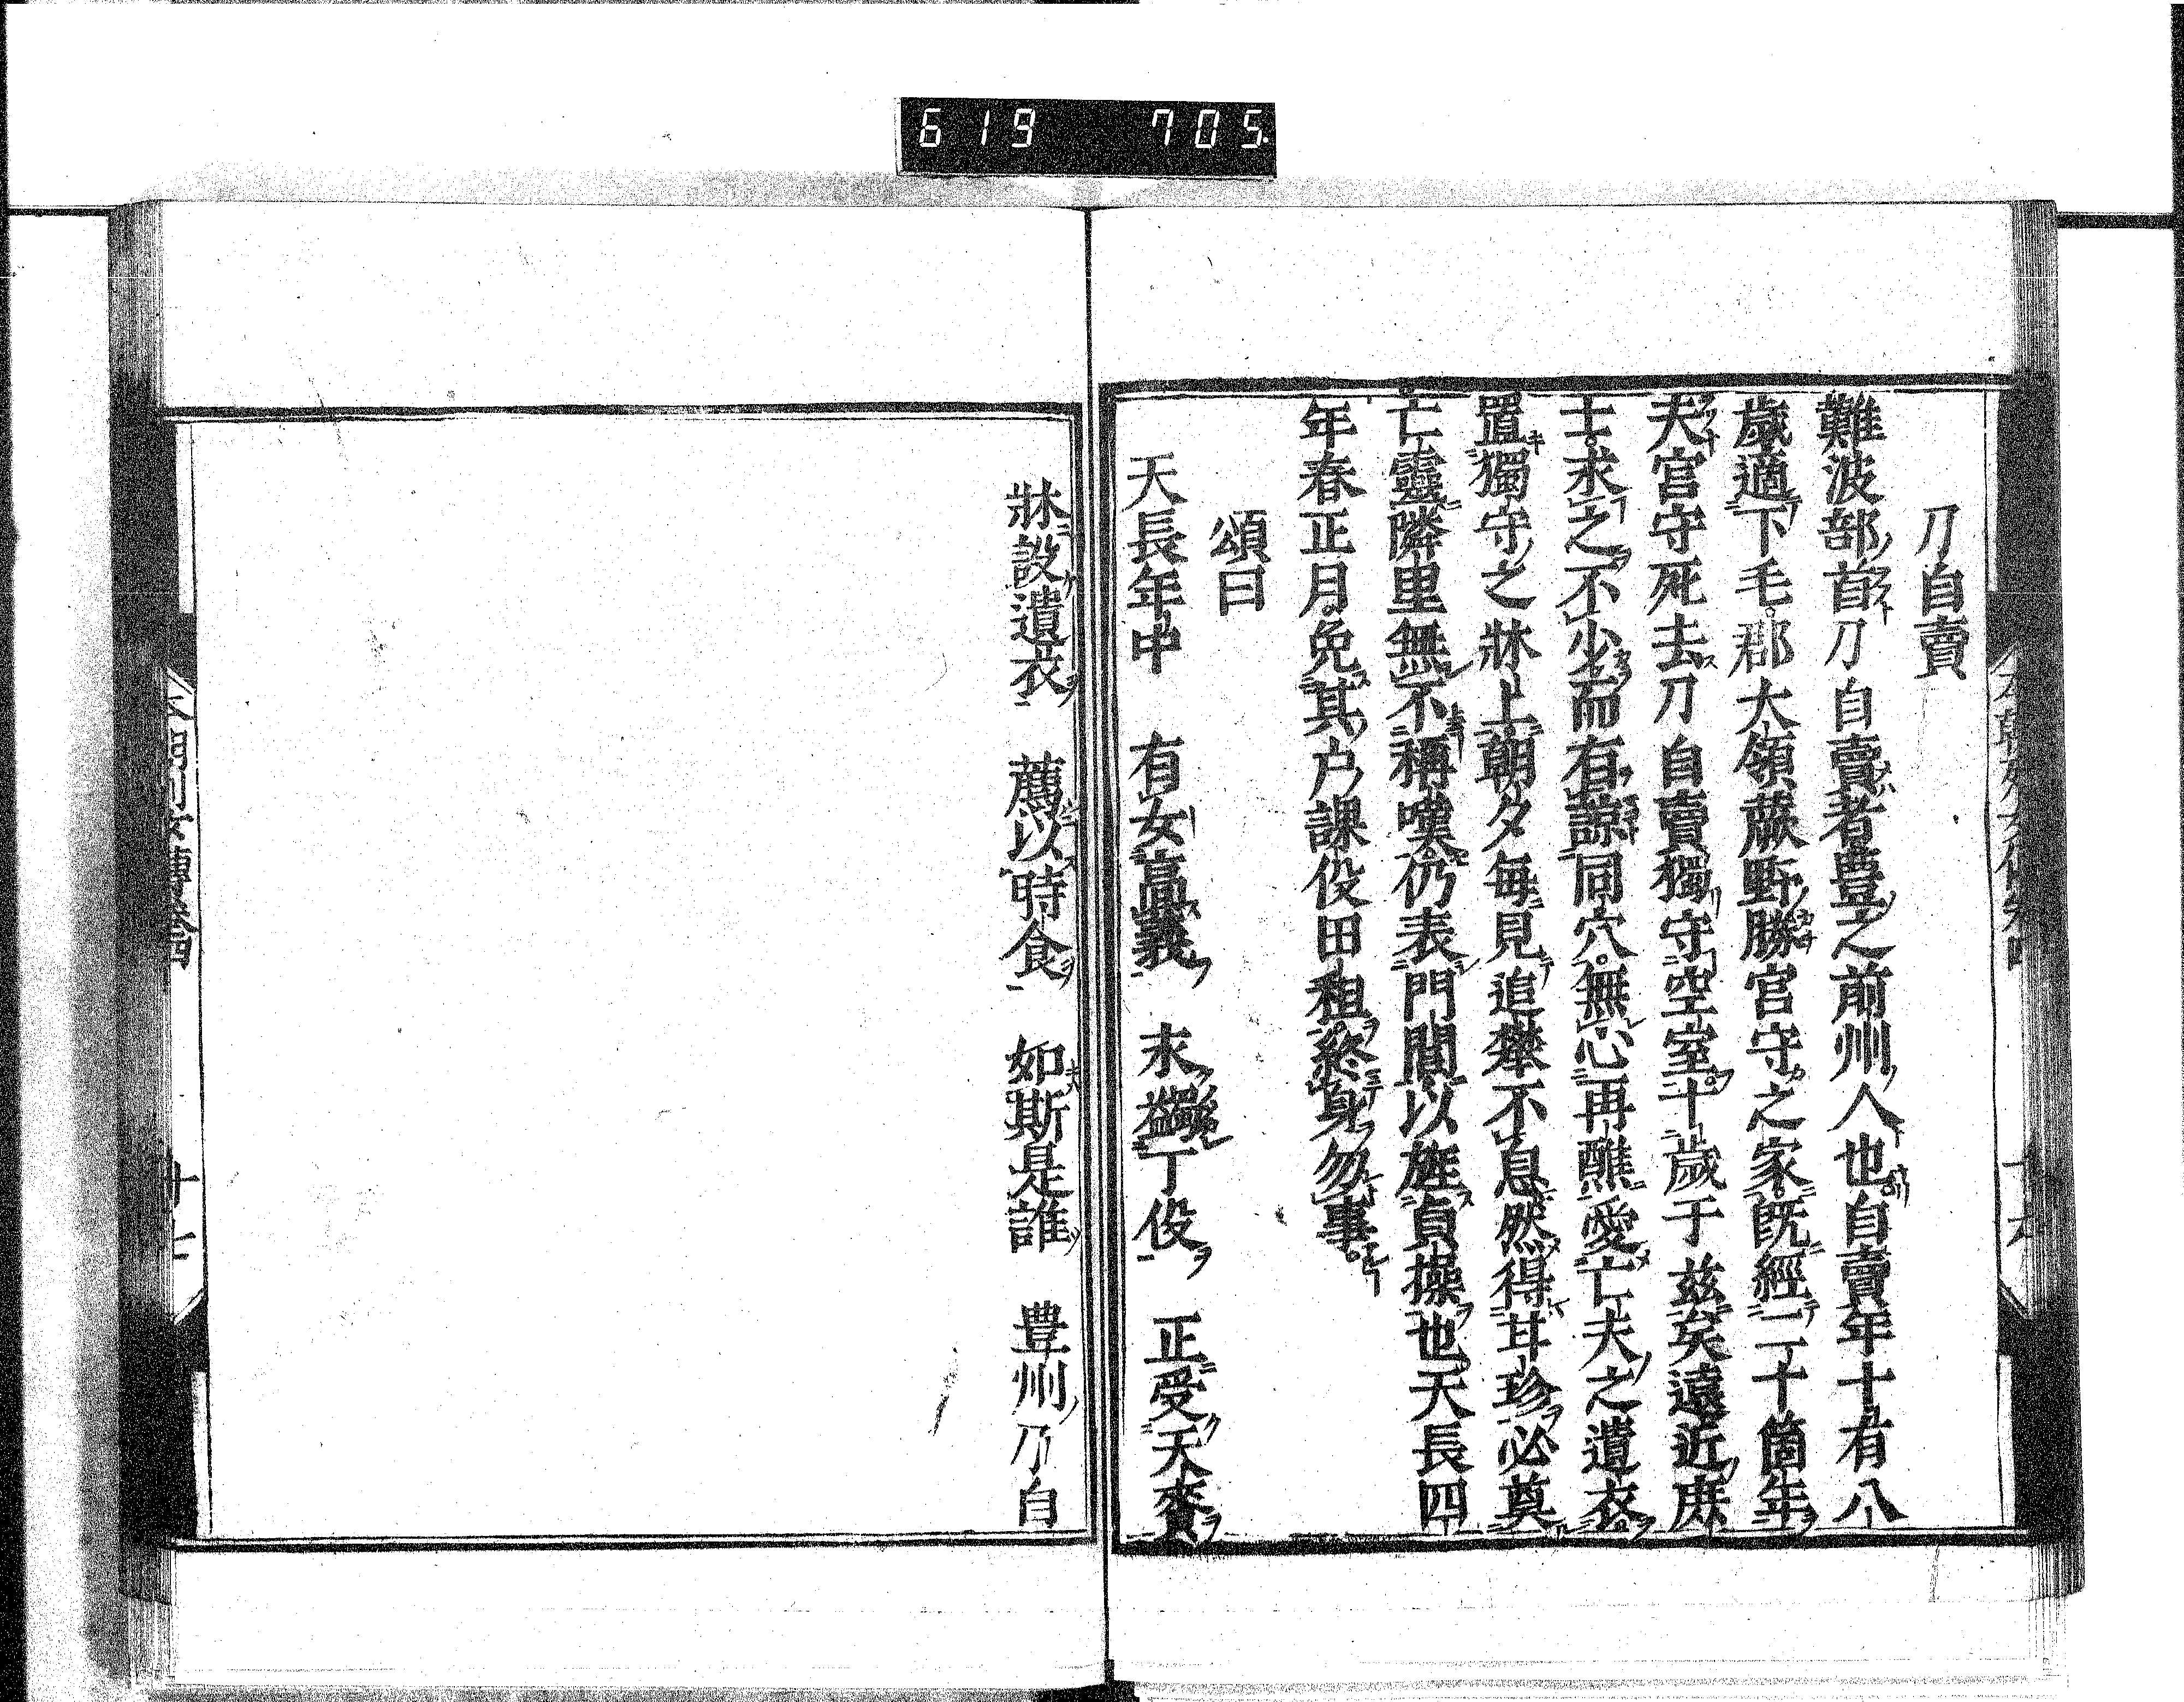 619 705
刀自賣
難波部首刀自賣者豊之前州人也自賣年十有八
歲適下毛郡大領蕨野勝宮守之家既經二十箇年
夫宮守死去刀自賣獨守空室十歲于茲矣遠近庶
士求之不少而有諒同穴無心再醮愛亡夫之遺衣
置獨守之牀上朝夕每見追攀不息然得甘珍必奠
亡靈隣里無不稱嘆仍表門閭以旌貞操也天長四
年春正月免其戶課役田租終身勿事
頌曰
天長年中 有女高義 永蠲丁役 正受天賚
牀設遺衣 薦以時食 如斯是誰 豊州刀自